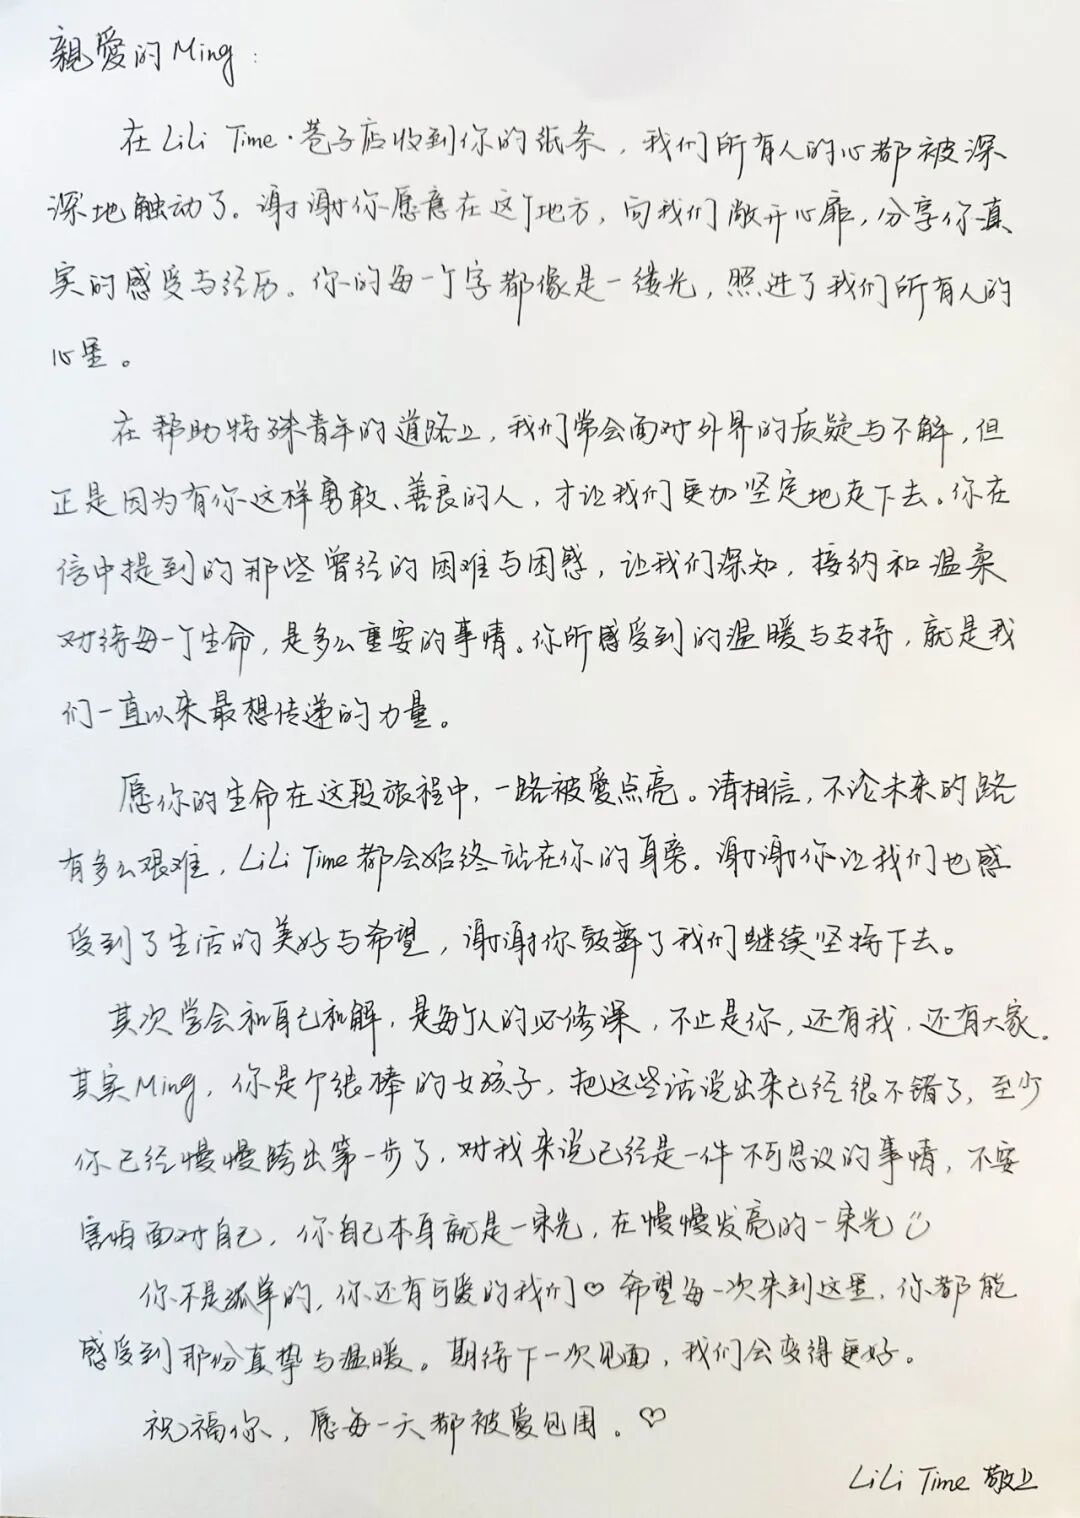 親愛的Ming:
在LiLi Time·巷子店收到你的纸条，我们所有人的心都被深
深地触动了。谢谢你愿意在这个地方，向我们敞开心扉，分享你真
实的感受与经历。你的每一个字都像是一缕光，照进了我们所有人的
心里。
在帮助特殊青年的道路上，我们常会面对外界的质疑与不解，但
正是因为有你这样勇敢、善良的人，才让我们更加坚定地走下去。你在
信中提到的那些曾经的困难与困惑，让我们深知，接纳和温柔
对待每一个生命，是多么重要的事情。你所感受到的温暖与支持，就是我
们一直以来最想传递的力量。
愿你的生命在这段旅程中，一路被爱点亮。请相信，不论未来的路
有多么艰难，LiLi Time都会始终站在你的身旁。谢谢你让我们也感
受到了生活的美好与希望，谢谢你鼓舞了我们继续坚持下去。
其次学会和自己和解，是每个人的必修课，不止是你，还有我，还有大家。
其实Ming，你是个很棒的女孩子，把这些话说出来已经很不错了，至少
你已经慢慢跨出第一步了，对我来说已经是一件不可思议的事情，不要
害怕面对自己，你自己本身就是一束光，在慢慢发亮的一束光
你不是孤单的，你还有可爱的我们♡希望每一次来到这里，你都能
感受到那份真挚与温暖。期待下一次见面，我们会变得更好。
祝福你，愿每一天都被爱包围。♡
LiLi Time 敬上